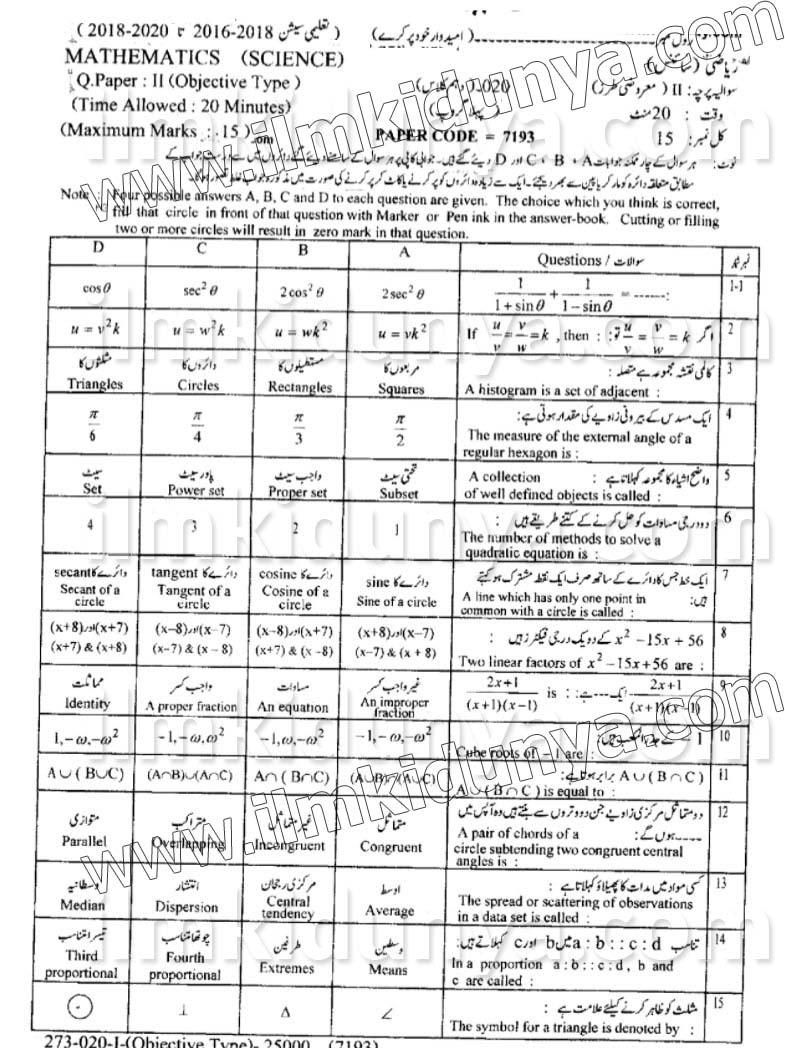 ( 2018-2020 تا 2016-2018 تعلیمی سیشن )
(امیدوار خود پُر کرے) رول نمبر
MATHEMATICS (SCIENCE)
ریاضی (سائنس)
Q.Paper : II (Objective Type )
سوالیہ پرچہ : II (معروضی طرز)
(Time Allowed : 20 Minutes)
(پہلا گروپ)
وقت : 20 منٹ
(Maximum Marks : 15 )
PAPER CODE = 7193
کل نمبر: 15
نوٹ: ہر سوال کے چار ممکنہ جوابات A ، B ، C اور D دیئے گئے ہیں۔ جوابی کاپی پر ہر سوال کے سامنے دیئے گئے دائروں میں سے درست جواب کے
مطابق متعلقہ دائرہ کو مارکر یا پین سے بھر دیجئے۔ ایک سے زیادہ دائروں کو پُر کرنے یا کاٹ کر پُر کرنے کی صورت میں مذکورہ جواب غلط تصور ہو گا۔
Note : Four possible answers A, B, C and D to each question are given. The choice which you think is correct,
fill that circle in front of that question with Marker or Pen ink in the answer-book. Cutting or filling
two or more circles will result in zero mark in that question.
D C B A Questions / سوالات نمبر شمار
cosθ sec² θ 2cos² θ 2sec² θ 1/(1+sinθ) + 1/(1−sinθ) = ------: 1-1
u = v²k u = w²k u = wk² u = vk² If u/v = v/w = k , then : اگر u/v = v/w = k تو : 2
مثلثوں کا دائروں کا مستطیلوں کا مربعوں کا کالمی نقشہ مجموعہ ہے متصلہ : 3
Triangles Circles Rectangles Squares A histogram is a set of adjacent :
π/6 π/4 π/3 π/2 ایک مسدس کے بیرونی زاویے کی مقدار ہوتی ہے : 4
The measure of the external angle of a
regular hexagon is :
سیٹ پاور سیٹ واجب سیٹ تحتی سیٹ A collection واضح اشیاء کا مجموعہ کہلاتا ہے : 5
Set Power set Proper set Subset of well defined objects is called :
4 3 2 1 دو درجی مساوات کو حل کرنے کے کتنے طریقے ہیں : 6
The number of methods to solve a
quadratic equation is :
دائرے کا secant دائرے کا tangent دائرے کا cosine دائرے کا sine ایک خط جس کا دائرے کے ساتھ صرف ایک نقطہ مشترک ہو کہتے ہیں: 7
Secant of a circle Tangent of a circle Cosine of a circle Sine of a circle A line which has only one point in
common with a circle is called :
(x+7)اور(x+8) (x−7)اور(x−8) (x+7)اور(x−8) (x−7)اور(x+8) x² −15x + 56 کے دو یک درجی فیکٹرز ہیں : 8
(x+7) & (x+8) (x-7) & (x - 8) (x+7) & (x -8) (x-7) & (x + 8) Two linear factors of x² −15x+56 are :
مماثلت واجب کسر مساوات غیر واجب کسر (2x+1)/((x+1)(x−1)) is : (2x+1)/((x+1)(x−1)) ایک ---ہے : 9
Identity A proper fraction An equation An improper fraction
1,−ω,−ω² −1,−ω,ω² 1,−ω,−ω² −1,−ω,−ω² 10
Cube roots of −1 are :
A∪(B∪C) (A∩B)∪(A∩C) A∩(B∩C) (A∪B)∩(A∪C) A∪(B∩C) برابر ہوتا ہے : 11
A∪(B∩C) is equal to :
متوازی متراکب غیر متماثل متماثل دو متماثل مرکزی زاویے جن دو وتروں سے بنتے ہیں وہ آپس میں 12
ہوں گے :
Parallel Overlapping Incongruent Congruent A pair of chords of a
circle subtending two congruent central
angles is :
وسطانیہ انتشار مرکزی رجحان اوسط کسی مواد میں مدات کا پھیلاؤ کہلاتا ہے : 13
Median Dispersion Central tendency Average The spread or scattering of observations
in a data set is called :
تیسرا متناسب چوتھا متناسب طرفین وسطین تناسب a : b : : c : d میں b اور c کہلاتے ہیں: 14
Third proportional Fourth proportional Extremes Means In a proportion a : b : : c : d , b and
c are called :
⊙ ⊥ Δ ∠ مثلث کو ظاہر کرنے کیلئے علامت ہے : 15
The symbol for a triangle is denoted by :
273-020-I-(Objective Type)- 25000 (7193)
www.ilmkidunya.com
ilmkidunya.com